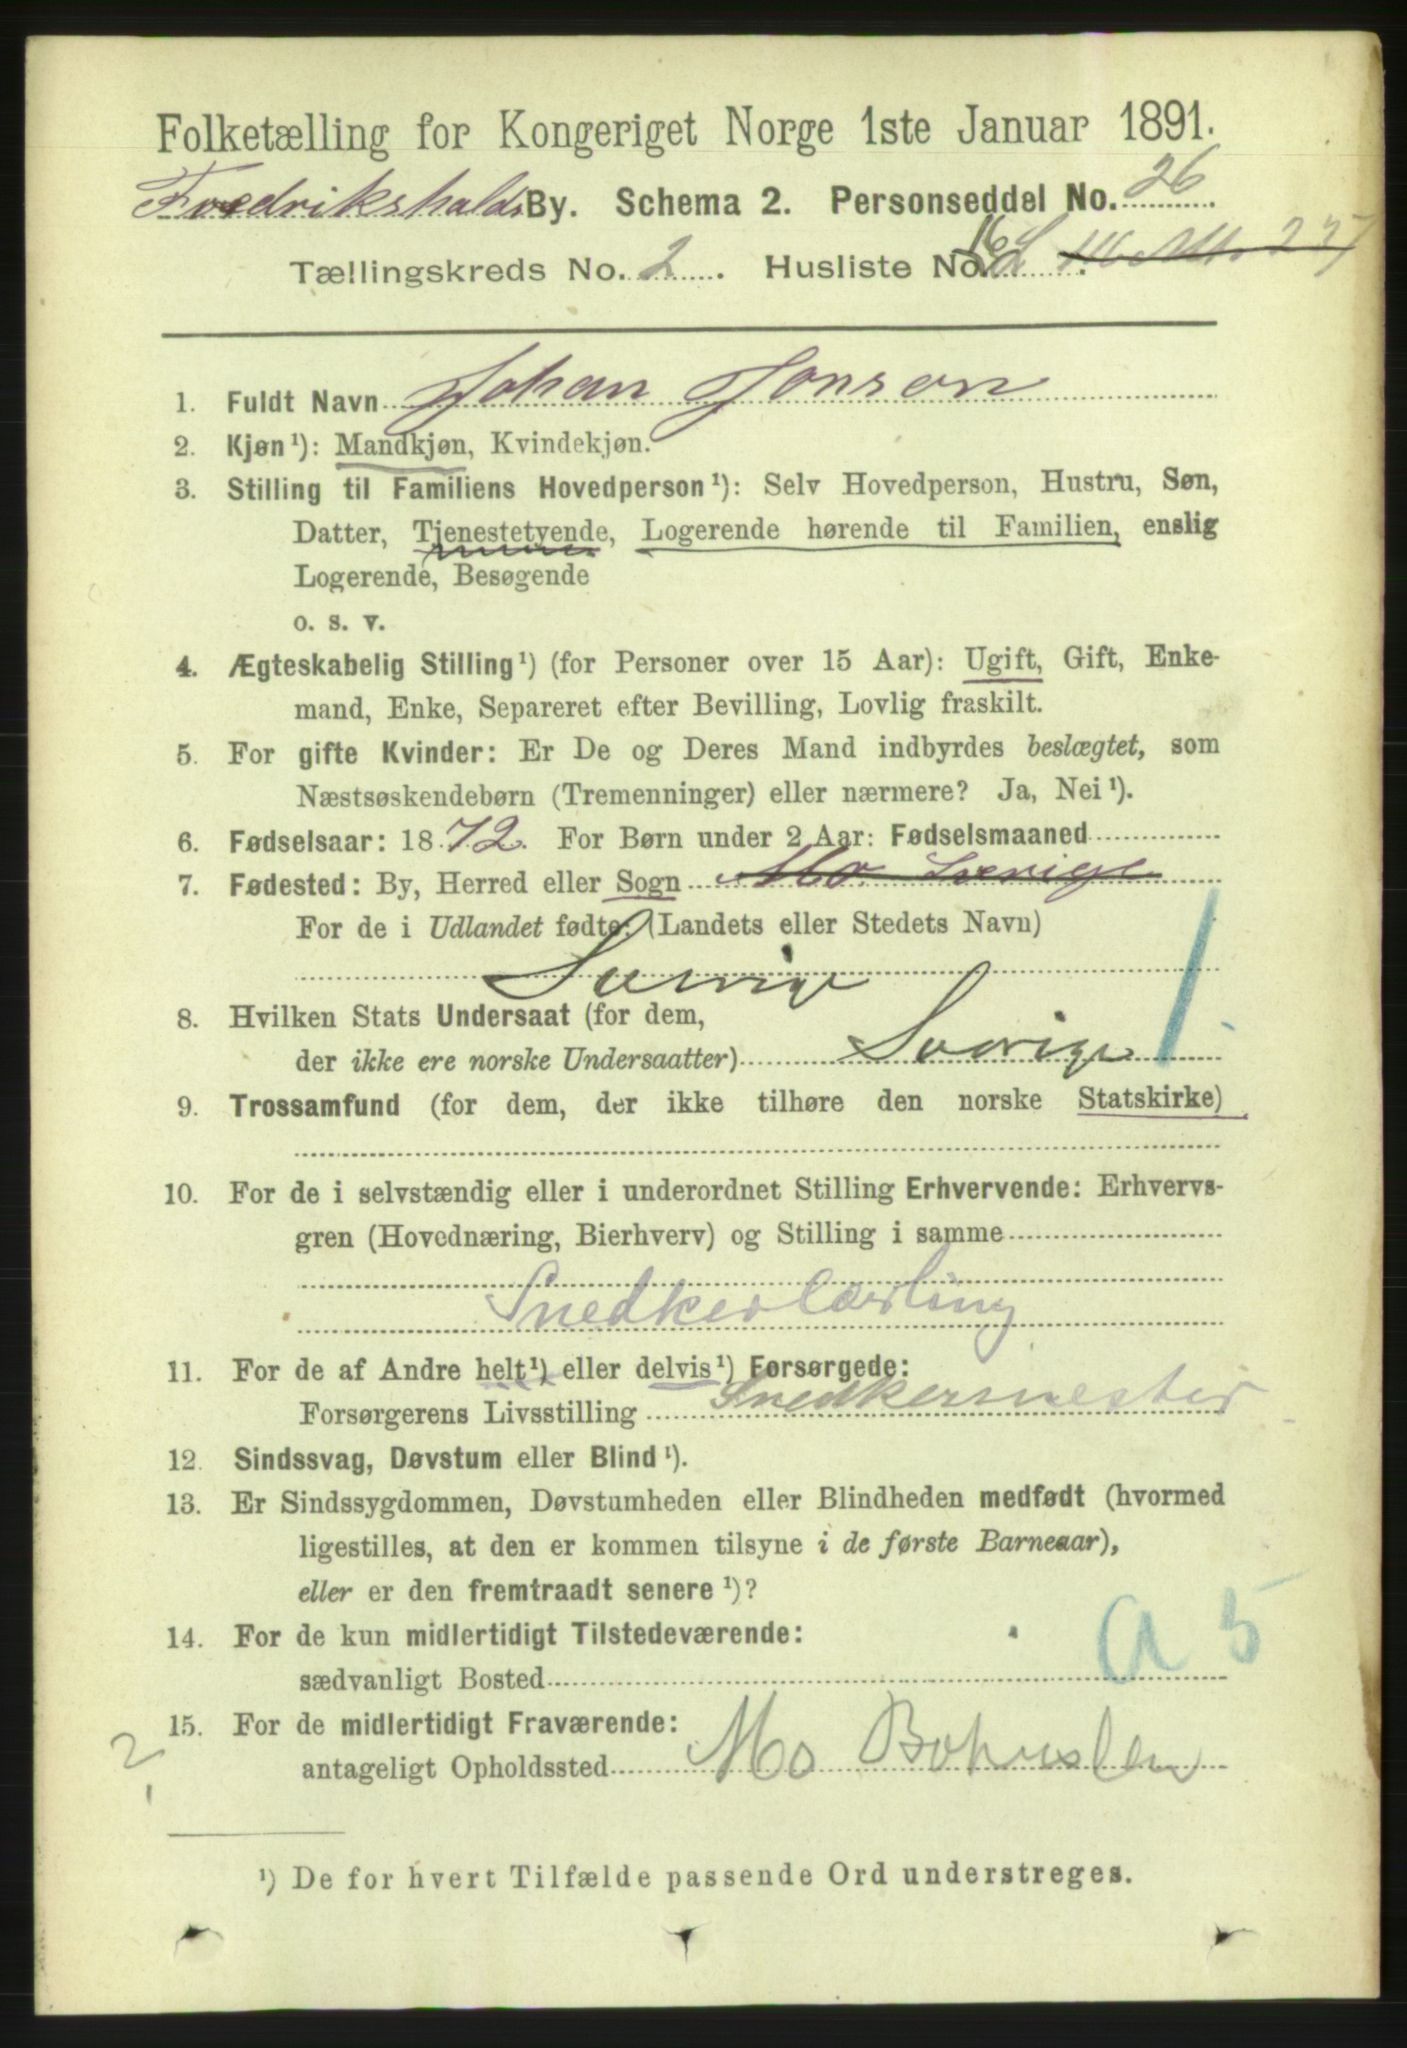 Folketælling for Kongeriget Norge 1ste Januar 1891.
Fredrikshalds By. Schema 2. Personseddel No. 26
Tællingskreds No. 2. Husliste No. 16
1. Fuldt Navn Johan Jonson
2. Kjøn¹): Mandkjøn, Kvindekjøn.
3. Stilling til Familiens Hovedperson¹): Selv Hovedperson, Hustru, Søn,
Datter, Tjenestetyende, Logerende hørende til Familien, enslig
Logerende, Besøgende
o. s. v.
4. Ægteskabelig Stilling¹) (for Personer over 15 Aar): Ugift, Gift, Enke-
mand, Enke, Separeret efter Bevilling, Lovlig fraskilt.
5. For gifte Kvinder: Er De og Deres Mand indbyrdes beslægtet, som
Næstsøskendebørn (Tremenninger) eller nærmere? Ja, Nei¹).
6. Fødselsaar: 1872. For Børn under 2 Aar: Fødselsmaaned
7. Fødested: By, Herred eller Sogn Mo Sverige
For de i Udlandet fødte: (Landets eller Stedets Navn)
Sverige
8. Hvilken Stats Undersaat (for dem,
der ikke ere norske Undersaatter) Sverige 1
9. Trossamfund (for dem, der ikke tilhøre den norske Statskirke)
10. For de i selvstændig eller i underordnet Stilling Erhvervende: Erhvervs-
gren (Hovednæring, Bierhverv) og Stilling i samme
Snedkerlærling
11. For de af Andre helt¹) eller delvis¹) Forsørgede:
Forsørgerens Livsstilling Snedkermester
12. Sindssvag, Døvstum eller Blind¹).
13. Er Sindssygdommen, Døvstumheden eller Blindheden medfødt (hvormed
ligestilles, at den er kommen tilsyne i de første Barneaar),
eller er den fremtraadt senere¹)?
14. For de kun midlertidigt Tilstedeværende:
sædvanligt Bosted a 5
15. For de midlertidigt Fraværende:
antageligt Opholdssted Mo Bohuslen
2
¹) De for hvert Tilfælde passende Ord understreges.